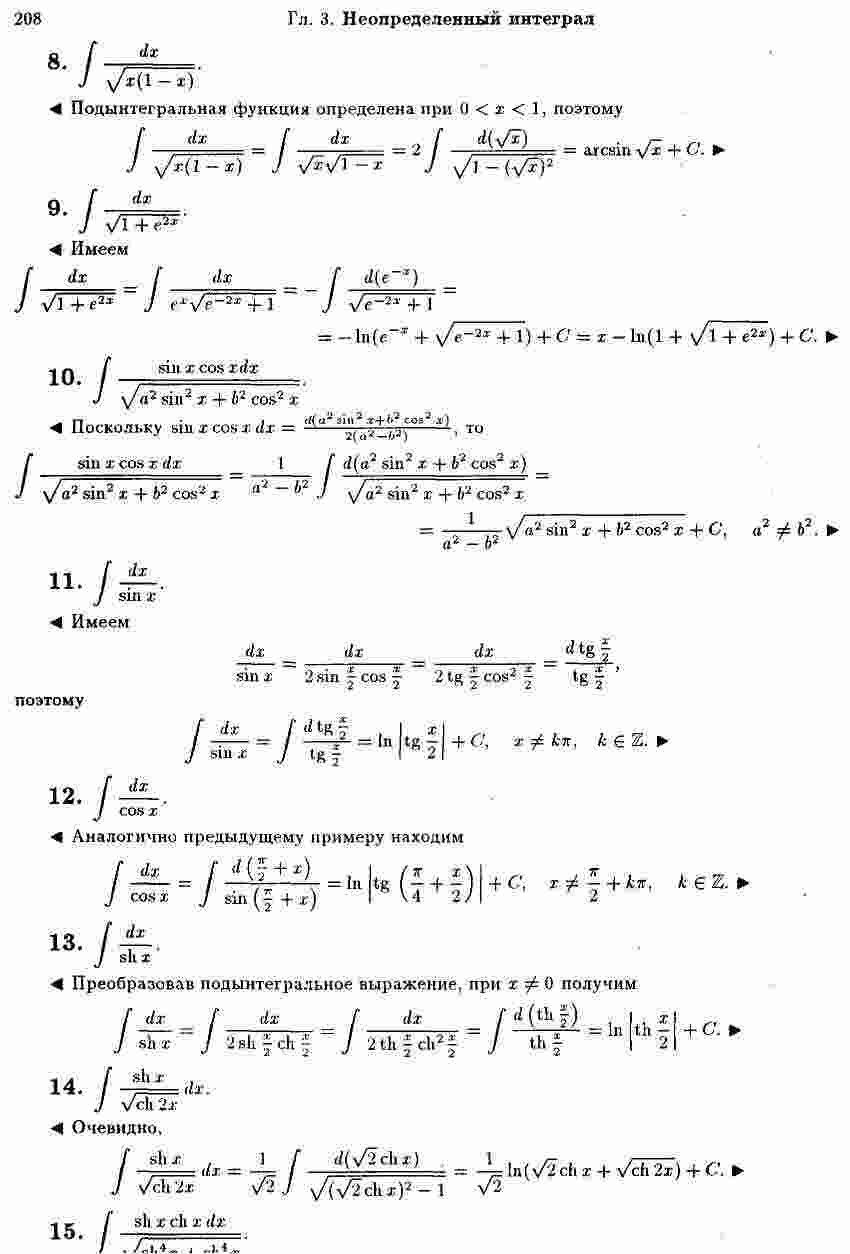 208 Гл. 3. Неопределенный интеграл
8. ∫ dx / √(x(1 − x)).
◄ Подынтегральная функция определена при 0 < x < 1, поэтому
∫ dx / √(x(1 − x)) = ∫ dx / (√x √(1 − x)) = 2 ∫ d(√x) / √(1 − (√x)²) = arcsin √x + C. ►
9. ∫ dx / √(1 + e^{2x}).
◄ Имеем
∫ dx / √(1 + e^{2x}) = ∫ dx / (e^x √(e^{−2x} + 1)) = − ∫ d(e^{−x}) / √(e^{−2x} + 1) =
= − ln(e^{−x} + √(e^{−2x} + 1)) + C = x − ln(1 + √(1 + e^{2x})) + C. ►
10. ∫ sin x cos x dx / √(a² sin² x + b² cos² x).
◄ Поскольку sin x cos x dx = d(a² sin² x + b² cos² x) / 2(a² − b²), то
∫ sin x cos x dx / √(a² sin² x + b² cos² x) = 1 / (a² − b²) ∫ d(a² sin² x + b² cos² x) / √(a² sin² x + b² cos² x) =
= 1 / (a² − b²) √(a² sin² x + b² cos² x) + C, a² ≠ b². ►
11. ∫ dx / sin x.
◄ Имеем
dx / sin x = dx / (2 sin x/2 cos x/2) = dx / (2 tg x/2 cos² x/2) = d tg x/2 / tg x/2,
поэтому
∫ dx / sin x = ∫ d tg x/2 / tg x/2 = ln |tg x/2| + C, x ≠ kπ, k ∈ ℤ. ►
12. ∫ dx / cos x.
◄ Аналогично предыдущему примеру находим
∫ dx / cos x = ∫ d(π/2 + x) / sin(π/2 + x) = ln |tg (π/4 + x/2)| + C, x ≠ π/2 + kπ, k ∈ ℤ. ►
13. ∫ dx / sh x.
◄ Преобразовав подынтегральное выражение, при x ≠ 0 получим
∫ dx / sh x = ∫ dx / (2 sh x/2 ch x/2) = ∫ dx / (2 th x/2 ch² x/2) = ∫ d(th x/2) / th x/2 = ln |th x/2| + C. ►
14. ∫ sh x / √(ch 2x) dx.
◄ Очевидно,
∫ sh x / √(ch 2x) dx = 1/√2 ∫ d(√2 ch x) / √((√2 ch x)² − 1) = 1/√2 ln(√2 ch x + √(ch 2x)) + C. ►
15. ∫ sh x ch x dx